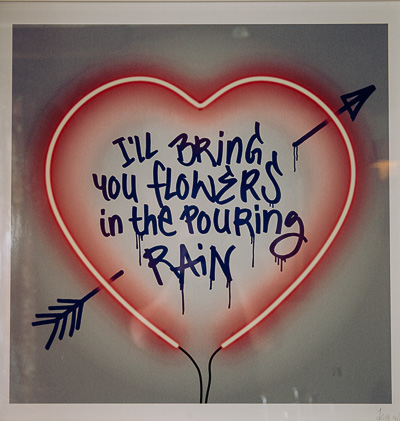 I'll BRING
YOU flOWERS
in the POURING
RAiN